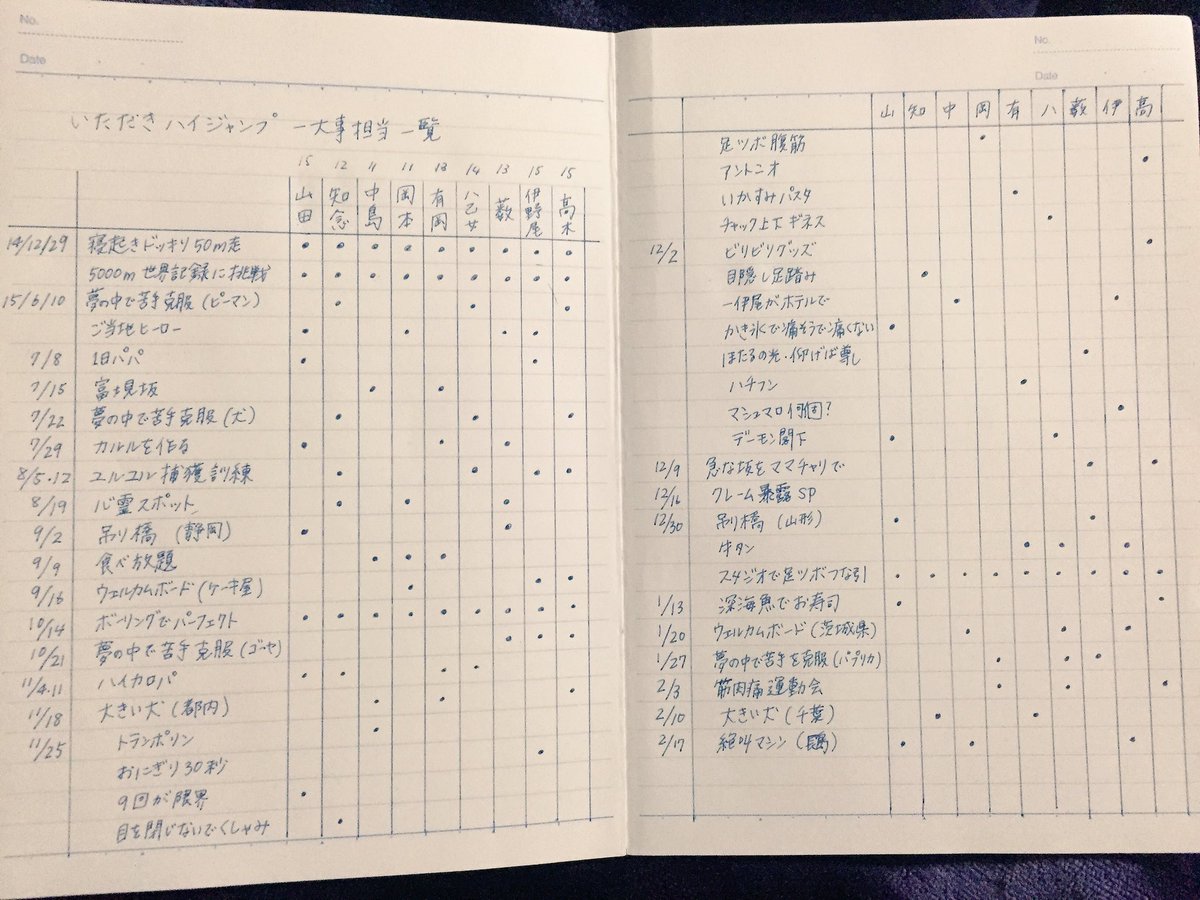 No.
Date
いただきハイジャンプ 一大事担当一覧
15 12 11 11 13 14 13 15 15
山田 知念 中島 岡本 有岡 八乙女 薮 伊野尾 高木
14/12/29 寝起きドッキリ50m走
5000m世界記録に挑戦
15/6/10 夢の中で苦手克服(ピーマン)
ご当地ヒーロー
7/8 1日パパ
7/15 富士見坂
7/22 夢の中で苦手克服(犬)
7/29 カルルを作る
8/5.12 ユルユル捕獲訓練
8/19 心霊スポット
9/2 吊り橋 (静岡)
9/9 食べ放題
9/16 ウェルカムボード(ケーキ屋)
10/14 ボーリングでパーフェクト
10/21 夢の中で苦手克服(ゴーヤ)
11/4.11 ハイカロパ
11/18 大きい犬(都内)
11/25 トランポリン
おにぎり30秒
9回が限界
目を閉じないでくしゃみ
No.
Date
山 知 中 岡 有 八 薮 伊 高
足ツボ腹筋
アントニオ
いかすみパスタ
チャック上下ギネス
12/2 ビリビリグッズ
目隠し足踏み
一伊屋がホテルで
かき氷で痛そうで痛くない
ほたるの光・仰げば尊し
ハチフン
マシュマロ何個?
デーモン閣下
12/9 急な坂をママチャリで
12/16 クレーム暴露SP
12/30 吊り橋(山形)
牛タン
スタジオで足ツボつな引
1/13 深海魚でお寿司
1/20 ウェルカムボード(茨城県)
1/27 夢の中で苦手を克服(パプリカ)
2/3 筋肉痛運動会
2/10 大きい犬(千葉)
2/17 絶叫マシン(長島)